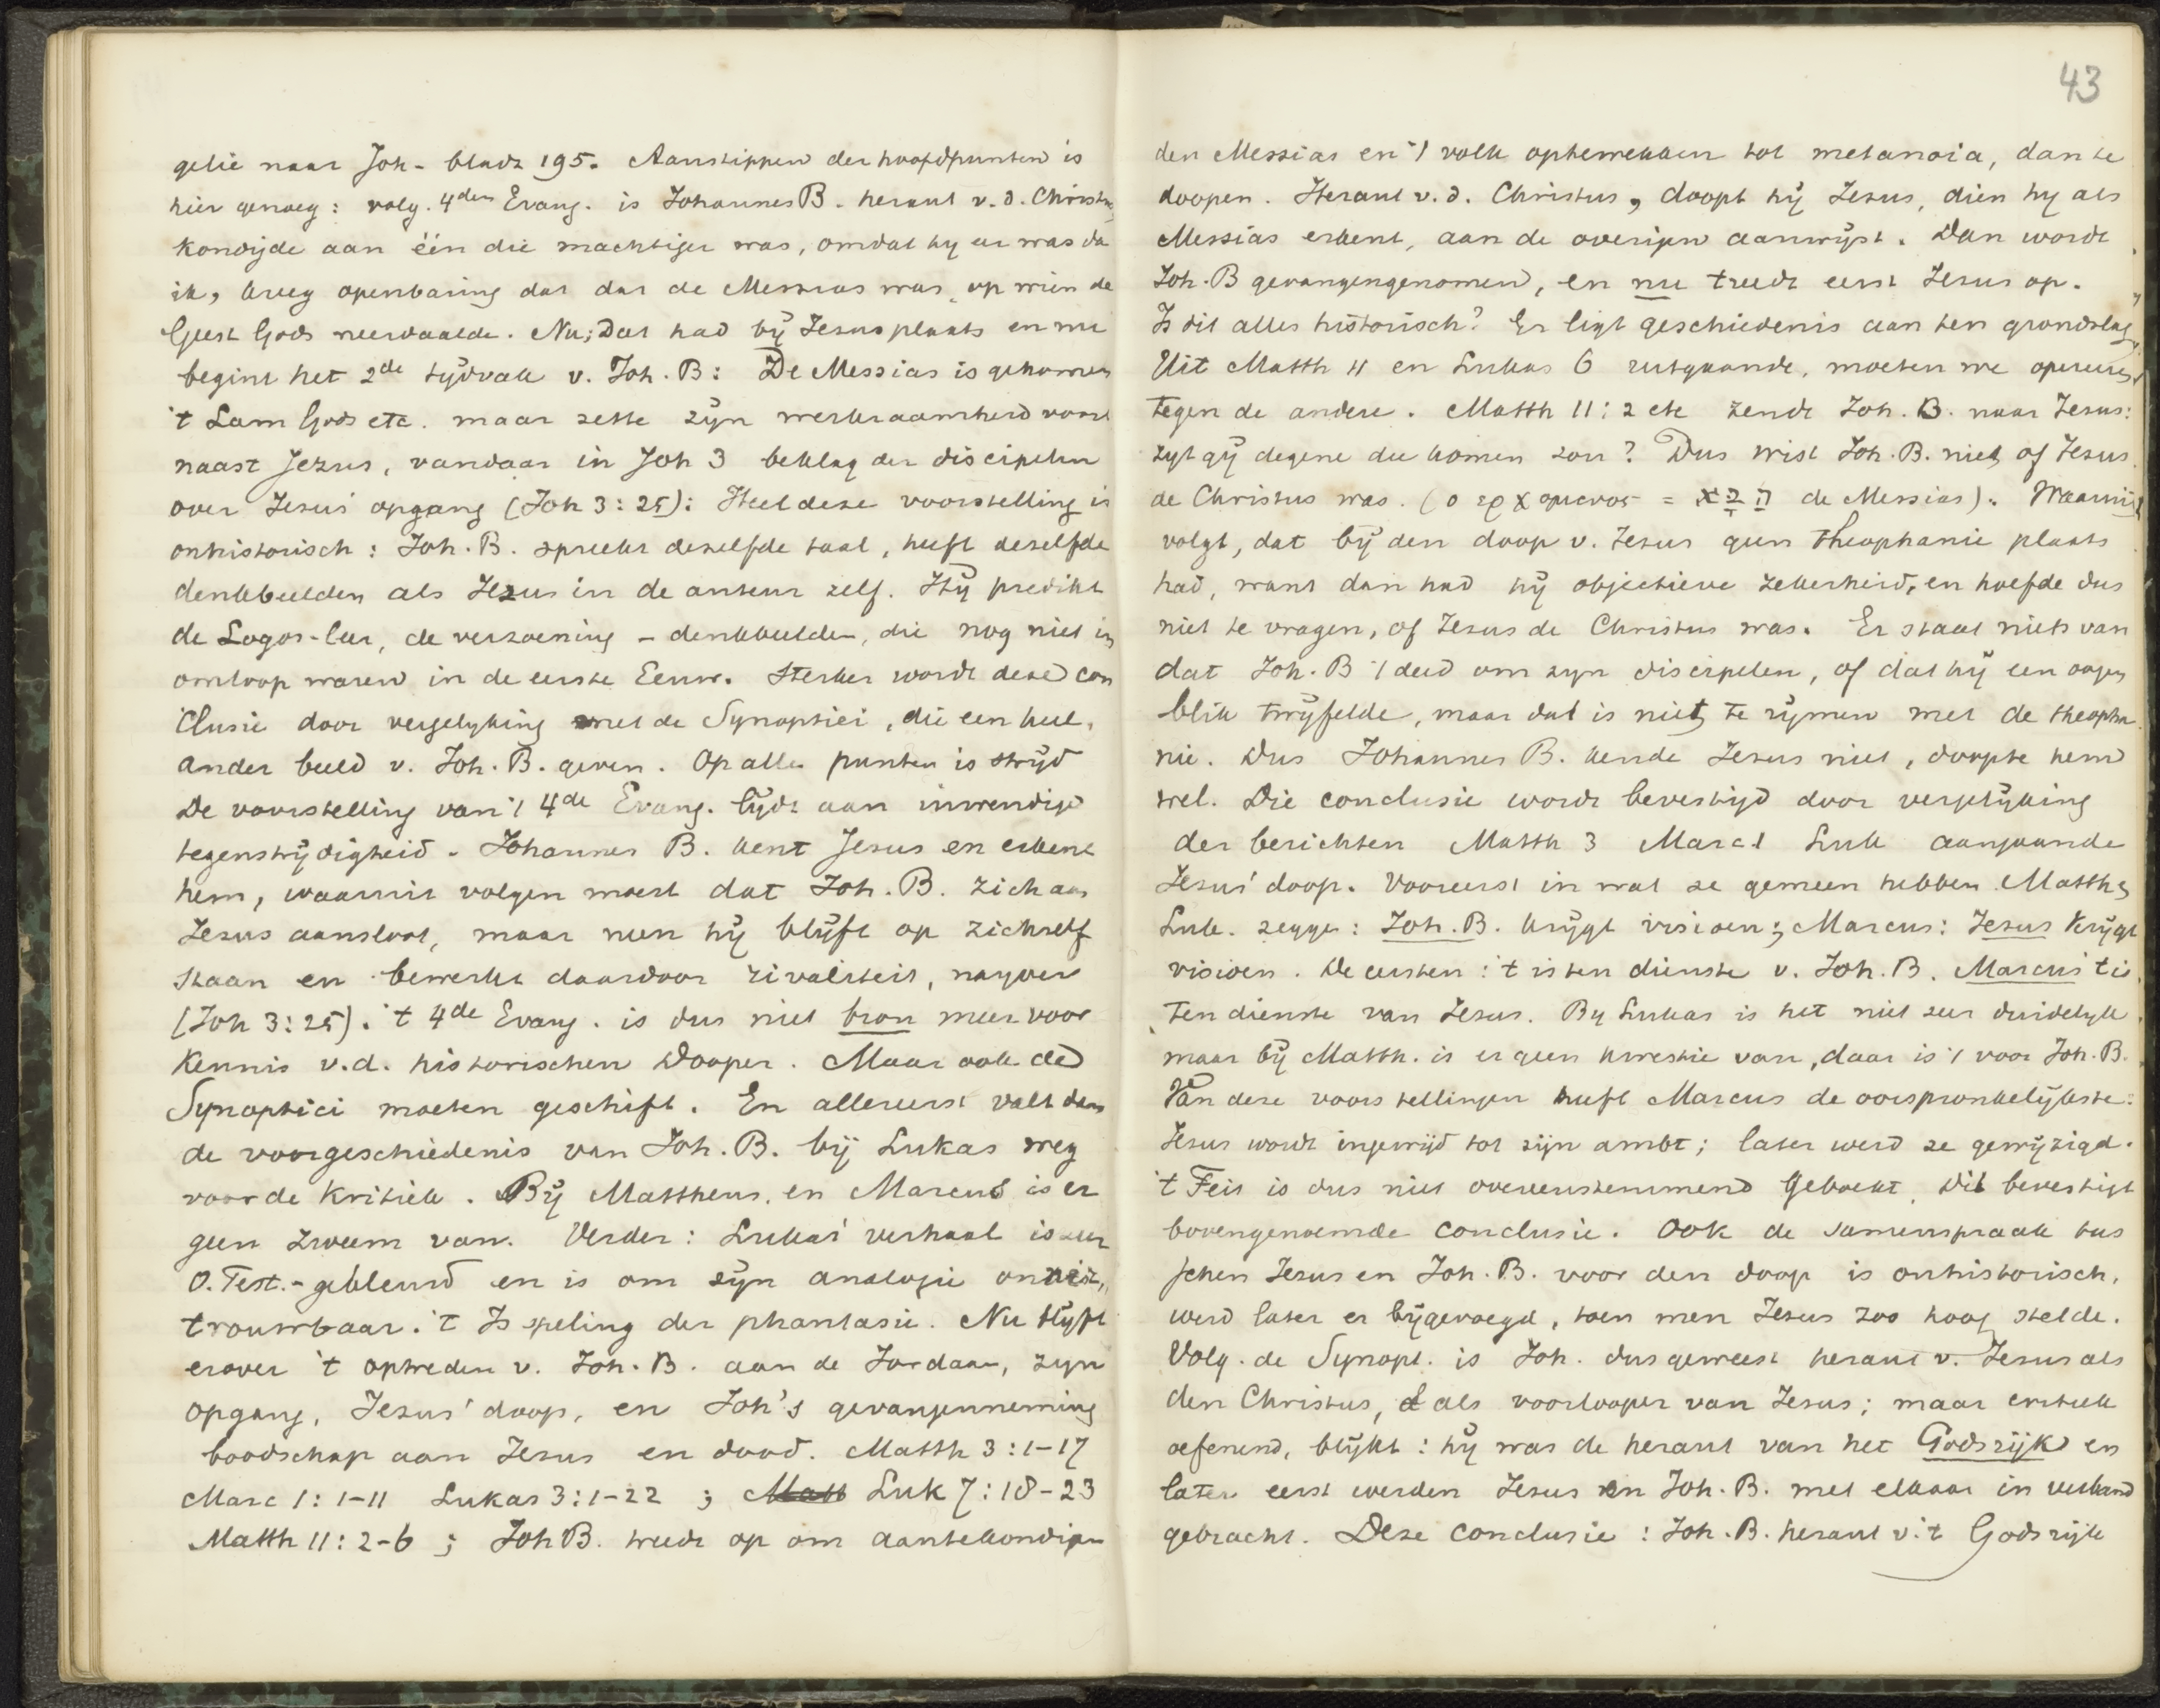 gelie naar Joh - bladz 195. Aanstippen der hoofdpunten is
hier genoeg: volg. 4den Evang. is Johannes B. heraut v. d. Christus
kondigde aan één die machtiger was, omdat hy er was da
ik, kreeg openbaring dat dat de Messias was, op wien de
Geest Gods neerdaalde. Nu; dat had bij Jezus plaats en nu
begint het 2de tijdvak v. Joh. B: De Messias is gekomen
't Lam Gods etc. maar zette zijn werkzaamheid voort
naast Jezus, vandaar in Joh 3 beklag der discipelen
over Jezus' opgang (Joh 3: 25): Heel deze voorstelling is
onhistorisch: Joh. B. spreekt dezelfde taal, heeft dezelfde
denkbeelden als Jezus en de auteur zelf. Hij predikt
de Logos-leer, de verzoening - denkbeelden, die nog niet in
omloop waren in de eerste Eeuw. Sterker wordt deze con
clusie door vergelyking met de Synoptici, die een heel
ander beeld v. Joh. B. geven. Op alle punten is strijd
De voorstelling van 't 4de Evang. lijdt aan inwendige
tegenstrijdigheid. Johannes B. kent Jezus en erkent
hem, waaruit volgen moest dat Joh. B. zich aan
Jezus aansloot, maar neen hij blijft op zichzelf
staan en bewerkt daardoor rivaliteit, nayver
(Joh 3: 25). 't 4de Evang. is dus niet bron meer voor
Kennis v.d. historischen Dooper. Maar ook de
Synoptici moeten geschift. En allereerst valt dan
de voorgeschiedenis van Joh. B. bij Lukas weg
voor de Kritiek. Bij Mattheus en Marcus is er
geen zweem van. Verder: Lukas' verhaal is zeer
O. Test.-gekleurd en is om zijn analogie on
trouwbaar. 't Is speling der phantasie. Nu blijft
erover 't optreden v. Joh. B. aan de Jordaan, zyn
opgang, Jezus' doop, en Joh's gevangenneming
boodschap aan Jezus en dood. Matth 3: 1-17
Marc 1: 1-11 Lukas 3: 1-22 ; Matt Luk 7: 18-23
Matth 11: 2-6 ; Joh B. treedt op om aantekondigen
43
den Messias en 't volk optewekken tot metanoia, dan te
doopen. Heraut v. d. Christus, doopt hij Jezus, dien hy als
Messias erkent, aan de overigen aanwijst. Dan wordt
Joh. B gevangengenomen, en nu treedt eerst Jezus op.
Is dit alles historisch? Er ligt geschiedenis aan ten grondslag
Uit Matth 11 en Lukas 6 uitgaande, moeten we opereeren
tegen de andere. Matth 11: 2 etc zendt Joh. B. naar Jezus:
zyt gij degene die komen zou? Dus wist Joh. B. niet of Jezus
de Christus was. (ο ερχομενος = הַבָּא de Messias). Waaruit
volgt, dat bij den doop v. Jezus geen theophanie plaats
had, want dan had hij objectieve zekerheid, en hoefde dus
niet te vragen, of Jezus de Christus was. Er staat niets van
dat Joh. B 't deed om zyn discipelen, of dat hij een oogen
blik twijfelde, maar dat is niet te rijmen met de theopha
nie. Dus Johannes B. kende Jezus niet, doopte hem
wel. Die conclusie wordt bevestigd door vergelijking
der berichten Matth 3 Marc 1 Luk aangaande
Jezus' doop. Vooreerst in wat ze gemeen hebben. Matth &
Luk. zeggen: Joh. B. krijgt visioen; Marcus: Jezus krijgt
visioen. De eersten: 't is ten dienste v. Joh. B. Marcus 't is
ten dienste van Jezus. By Lukas is het niet zeer duidelyk
maar bij Matth. is er geen kwestie van, daar is 't voor Joh. B.
Van deze voorstellingen heeft Marcus de oorspronkelijkste:
Jezus wordt ingewijd tot zijn ambt; later werd ze gewijzigd.
't Feit is dus niet overeenstemmend geboekt, dit bevestigt
bovengenoemde conclusie. Ook de samenspraak tus
schen Jezus en Joh. B. voor den doop is onhistorisch,
werd later er bijgevoegd, toen men Jezus zoo hoog stelde.
Volg. de Synopt. is Joh. dus geweest heraut v. Jezus als
den Christus, & als voorlooper van Jezus; maar critiek
oefenend, blijkt: hij was de heraut van het Godsrijk en
later eerst werden Jezus en Joh. B. met elkaar in verband
gebracht. Deze conclusie: Joh. B. heraut v. 't Godsrijk